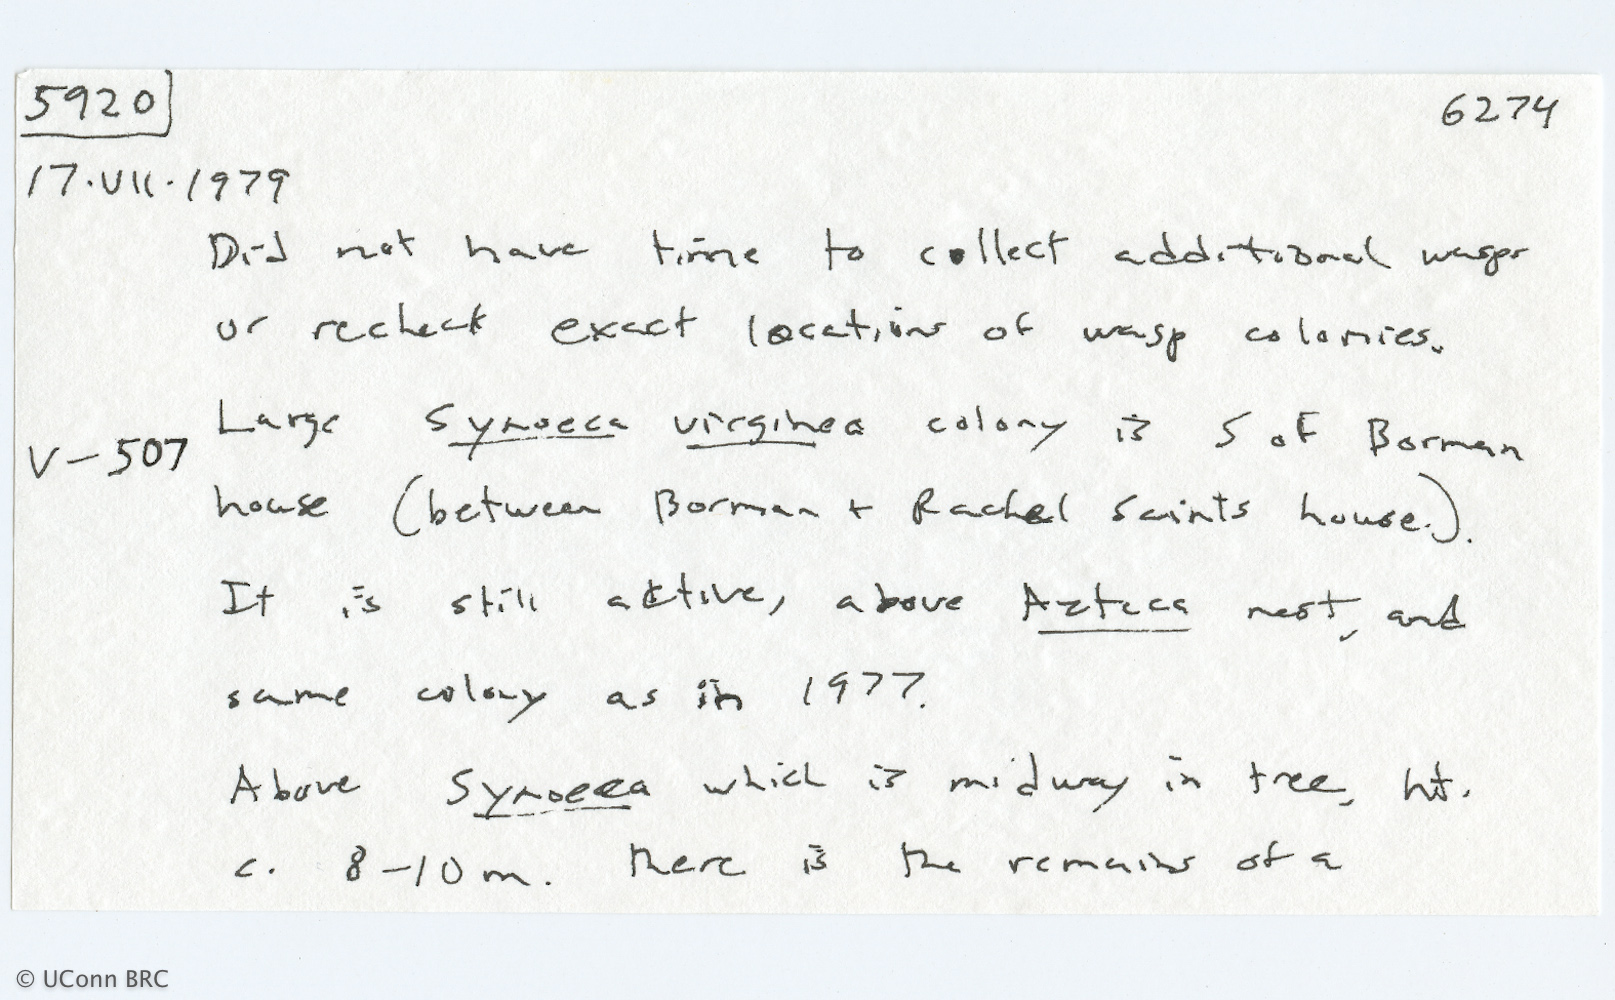 5920 6274
17.VII.1979
Did not have time to collect additional wasps
or recheck exact locations of wasp colonies.
Large Synoeca virginea colony is S of Borman
V-507
house (between Borman + Rachel Saints house.).
It is still active, above Azteca nest, and
same colony as in 1977.
Above Synoeca which is midway in tree, ht.
c. 8-10 m. there is the remains of a
© UConn BRC